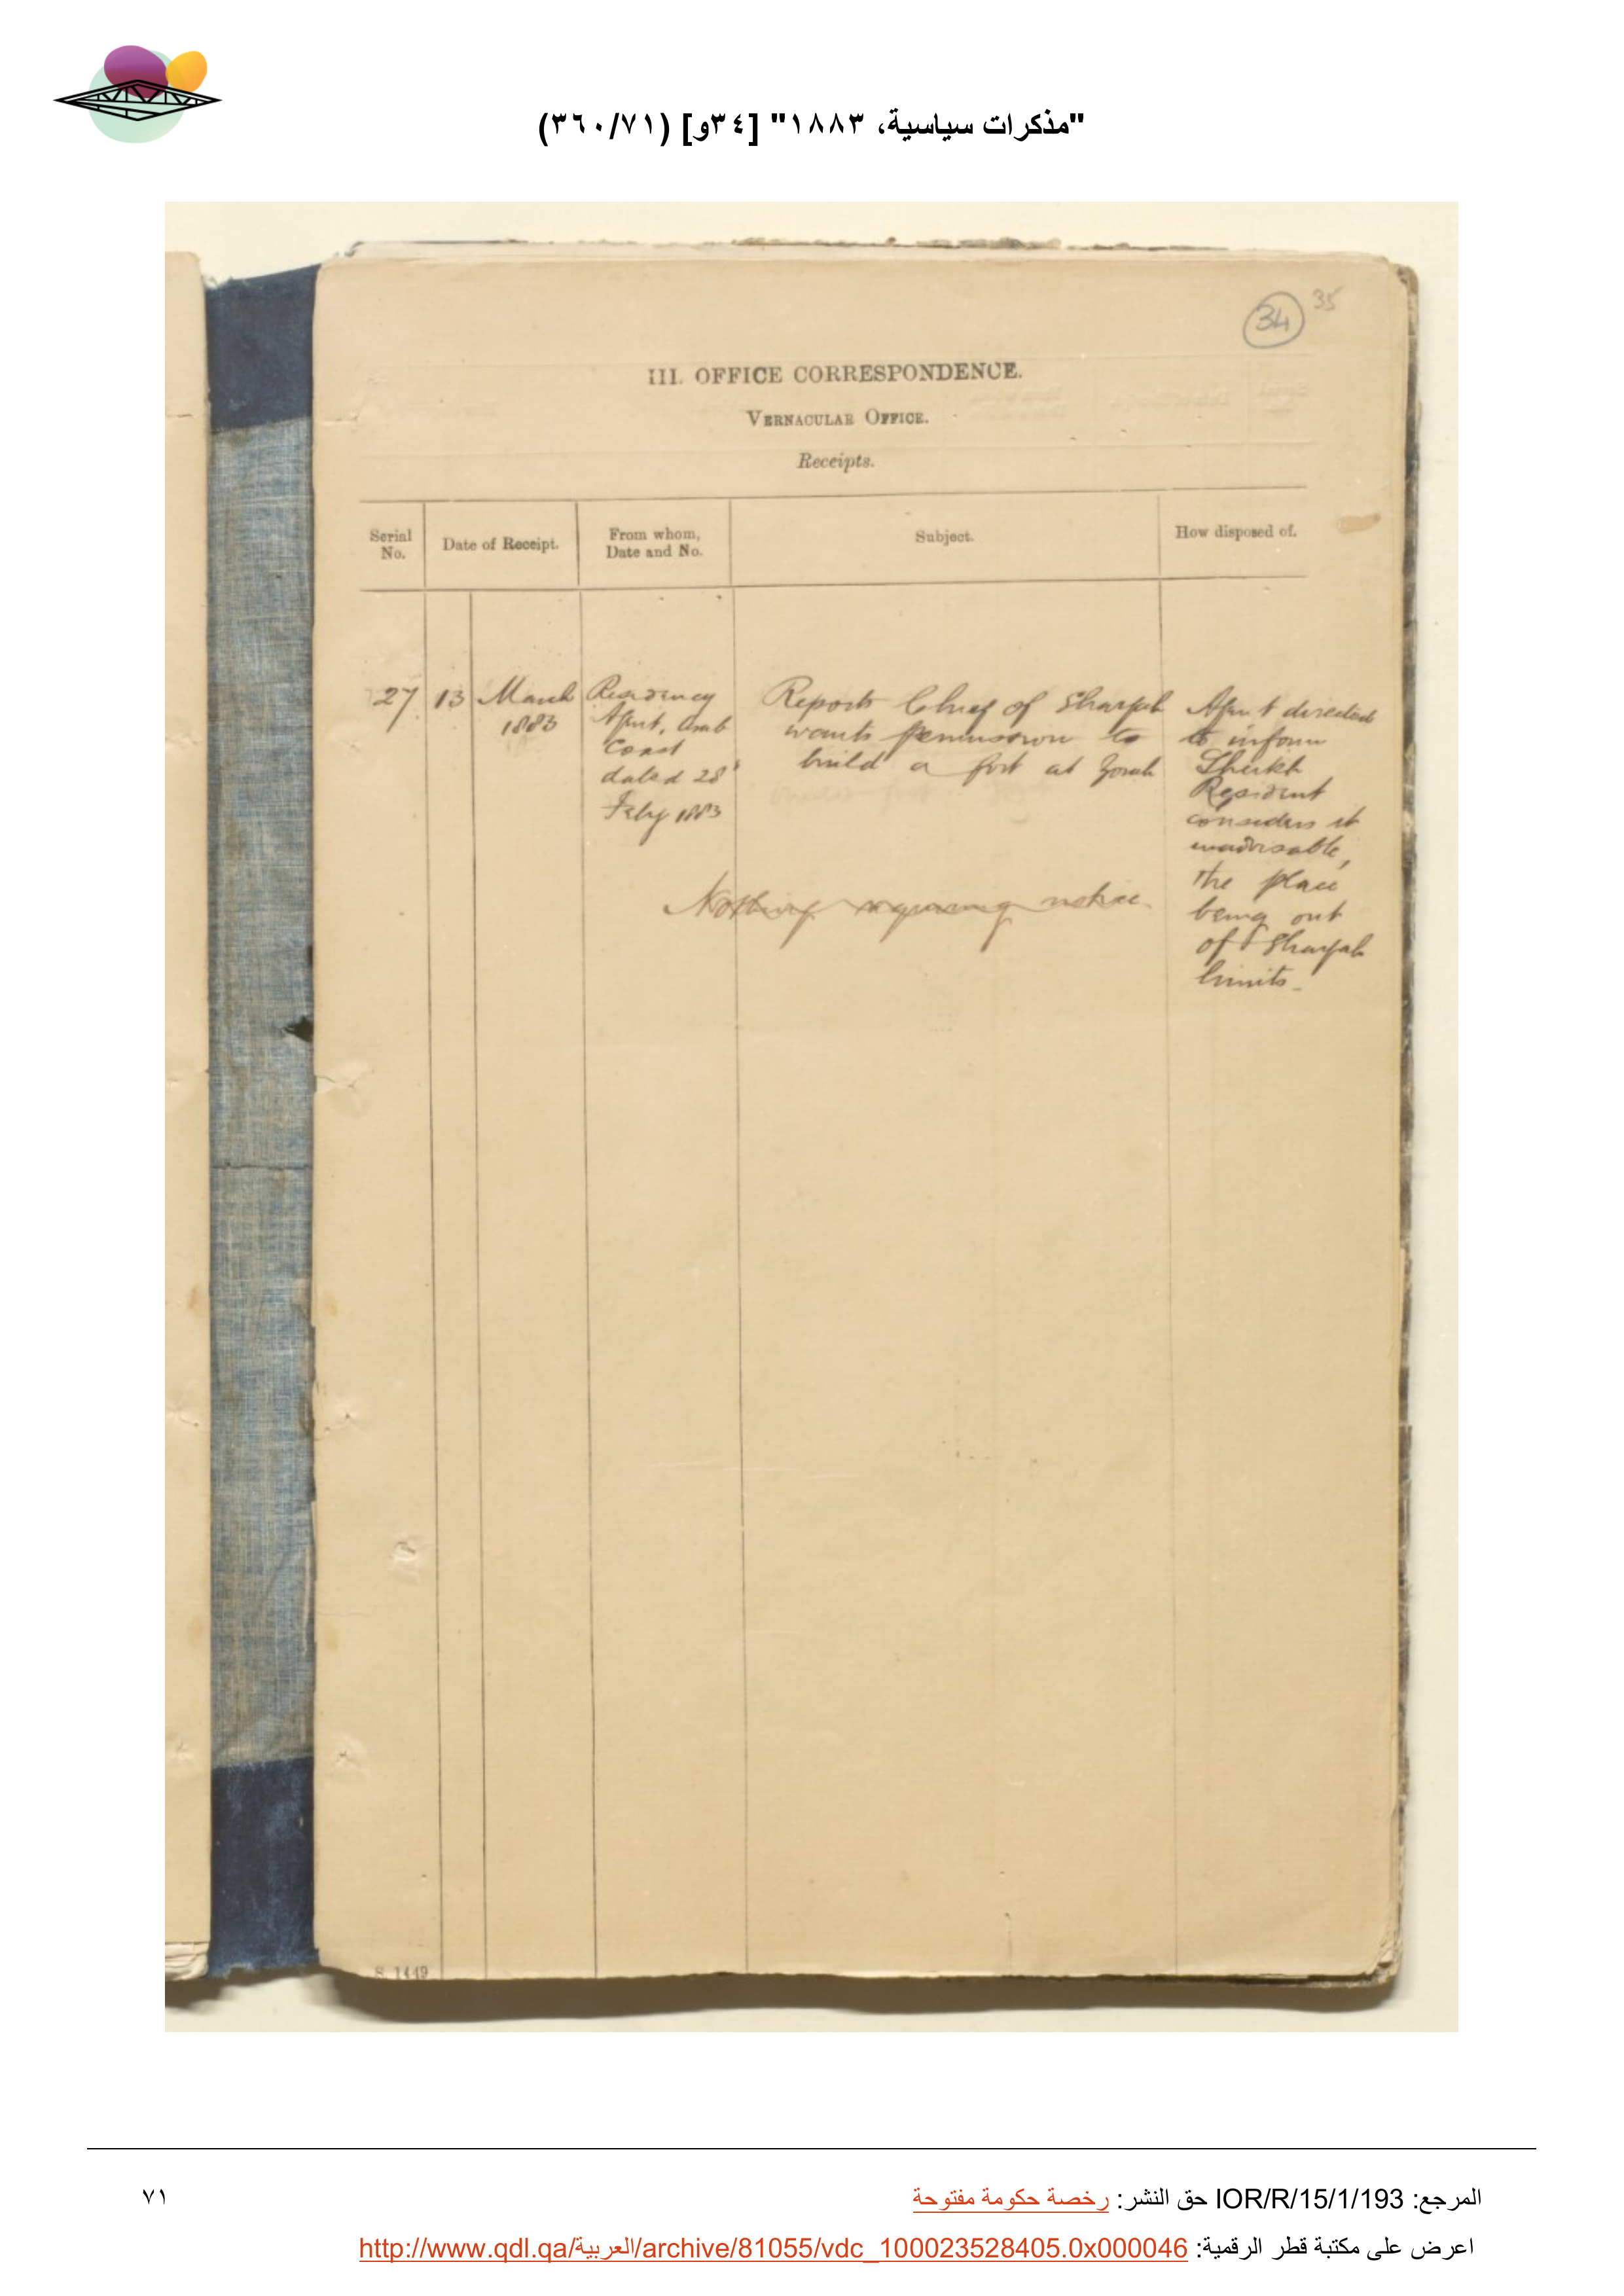 "مذكرات سياسية، ١٨٨٣" [٣٤و] (٣٦٠/٧١)
34 35
III. OFFICE CORRESPONDENCE.
VERNACULAR OFFICE.
Receipts.
Serial No.
Date of Receipt.
From whom, Date and No.
Subject.
How disposed of.
27
13 March
1883
Residency
Agent, Arab
Coast
dated 28
Feby 1883
Reports Chief of Shargah
wants permission to
build a fort at Zorah
Nothing requiring notice.
Agent directed
to inform
Sheikh
Resident
considers it
inadvisable,
the place
being out
of Shargah
limits.
S. 1449
المرجع: IOR/R/15/1/193 حق النشر: رخصة حكومة مفتوحة
٧١
اعرض على مكتبة قطر الرقمية: http://www.qdl.qa/العربية/archive/81055/vdc_100023528405.0x000046